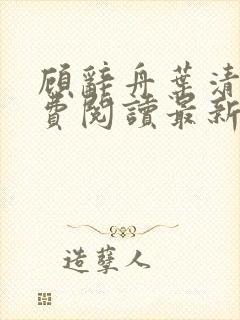 顾辭舟葉清
費閱讀最新
造孽人